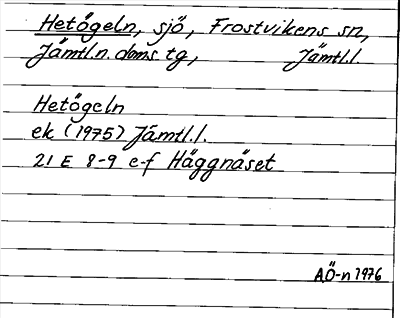 Hetögeln, sjö, Frostvikens sn,
Jämtl.n. doms. tg, Jämtl.l.
Hetögeln
ek (1975) Jämtl.l.
21 E 8-9 e-f Häggnäset
AÖ-n 1976